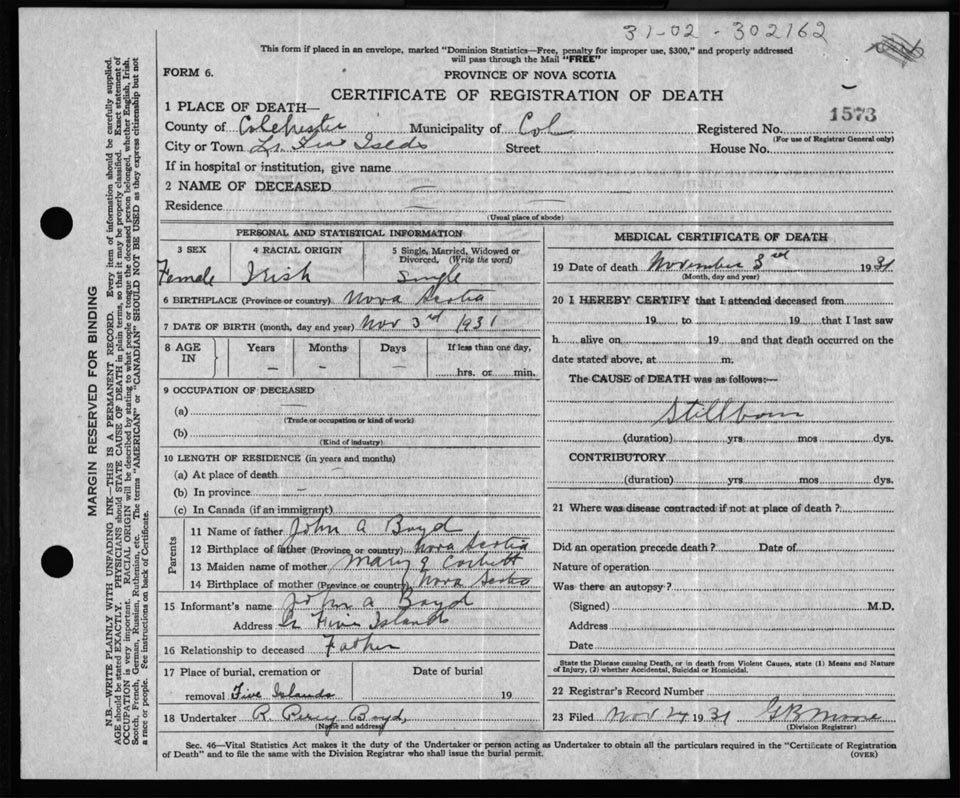 31-02-302162
This form if placed in an envelope, marked "Dominion Statistics—Free, penalty for improper use, $300," and properly addressed
will pass through the Mail "FREE"
FORM 6.
PROVINCE OF NOVA SCOTIA
CERTIFICATE OF REGISTRATION OF DEATH
1573
1 PLACE OF DEATH—
County of Colchester Municipality of Col Registered No.
(For use of Registrar General only)
City or Town Lr. Five Islds Street House No.
If in hospital or institution, give name
2 NAME OF DECEASED —
Residence —
(Usual place of abode)
PERSONAL AND STATISTICAL INFORMATION
3 SEX 4 RACIAL ORIGIN 5 Single, Married, Widowed or
Divorced, (Write the word)
Female Irish Single
6 BIRTHPLACE (Province or country) Nova Scotia
7 DATE OF BIRTH (month, day and year) Nov 3rd 1931
8 AGE IN Years Months Days If less than one day,
— — — hrs. or min.
9 OCCUPATION OF DECEASED
(a) —
(Trade or occupation or kind of work)
(b)
(Kind of industry)
10 LENGTH OF RESIDENCE (in years and months)
(a) At place of death —
(b) In province —
(c) In Canada (if an immigrant)
Parents
11 Name of father John A Boyd
12 Birthplace of father (Province or country) Nova Scotia
13 Maiden name of mother Mary J Corbett
14 Birthplace of mother (Province or country) Nova Scotia
15 Informant's name John A Boyd
Address Lr Five Islands
16 Relationship to deceased Father
17 Place of burial, cremation or Date of burial
removal Five Islands 19
18 Undertaker R. Percy Boyd,
(Name and address)
MEDICAL CERTIFICATE OF DEATH
19 Date of death November 3rd 1931
(Month, day and year)
20 I HEREBY CERTIFY that I attended deceased from
19 to 19 that I last saw
h alive on 19 and that death occurred on the
date stated above, at m.
The CAUSE of DEATH was as follows:—
Stillborn
(duration) yrs. mos. dys.
CONTRIBUTORY
(duration) yrs. mos. dys.
21 Where was disease contracted if not at place of death ?
Did an operation precede death ? Date of
Nature of operation
Was there an autopsy ?
(Signed) M.D.
Address
Date
State the Disease causing Death, or in death from Violent Causes, state (1) Means and Nature
of Injury, (2) whether Accidental, Suicidal or Homicidal.
22 Registrar's Record Number
23 Filed Nov 24 1931 G B Moore
(Division Registrar)
Sec. 46—Vital Statistics Act makes it the duty of the Undertaker or person acting as Undertaker to obtain all the particulars required in the "Certificate of Registration
of Death" and to file the same with the Division Registrar who shall issue the burial permit.
(OVER)
MARGIN RESERVED FOR BINDING
N.B.—WRITE PLAINLY WITH UNFADING INK—THIS IS A PERMANENT RECORD. Every item of information should be carefully supplied.
AGE should be stated EXACTLY. PHYSICIANS should STATE CAUSE OF DEATH in plain terms, so that it may be properly classified. Exact statement of
OCCUPATION is very important. RACIAL ORIGIN will be described by stating to what people or tongue the deceased person belonged, whether English, Irish,
Scotch, French, German, Russian, Ruthenian, etc. The terms "AMERICAN" or "CANADIAN" SHOULD NOT BE USED as they express citizenship but not
a race or people. See instructions on back of Certificate.